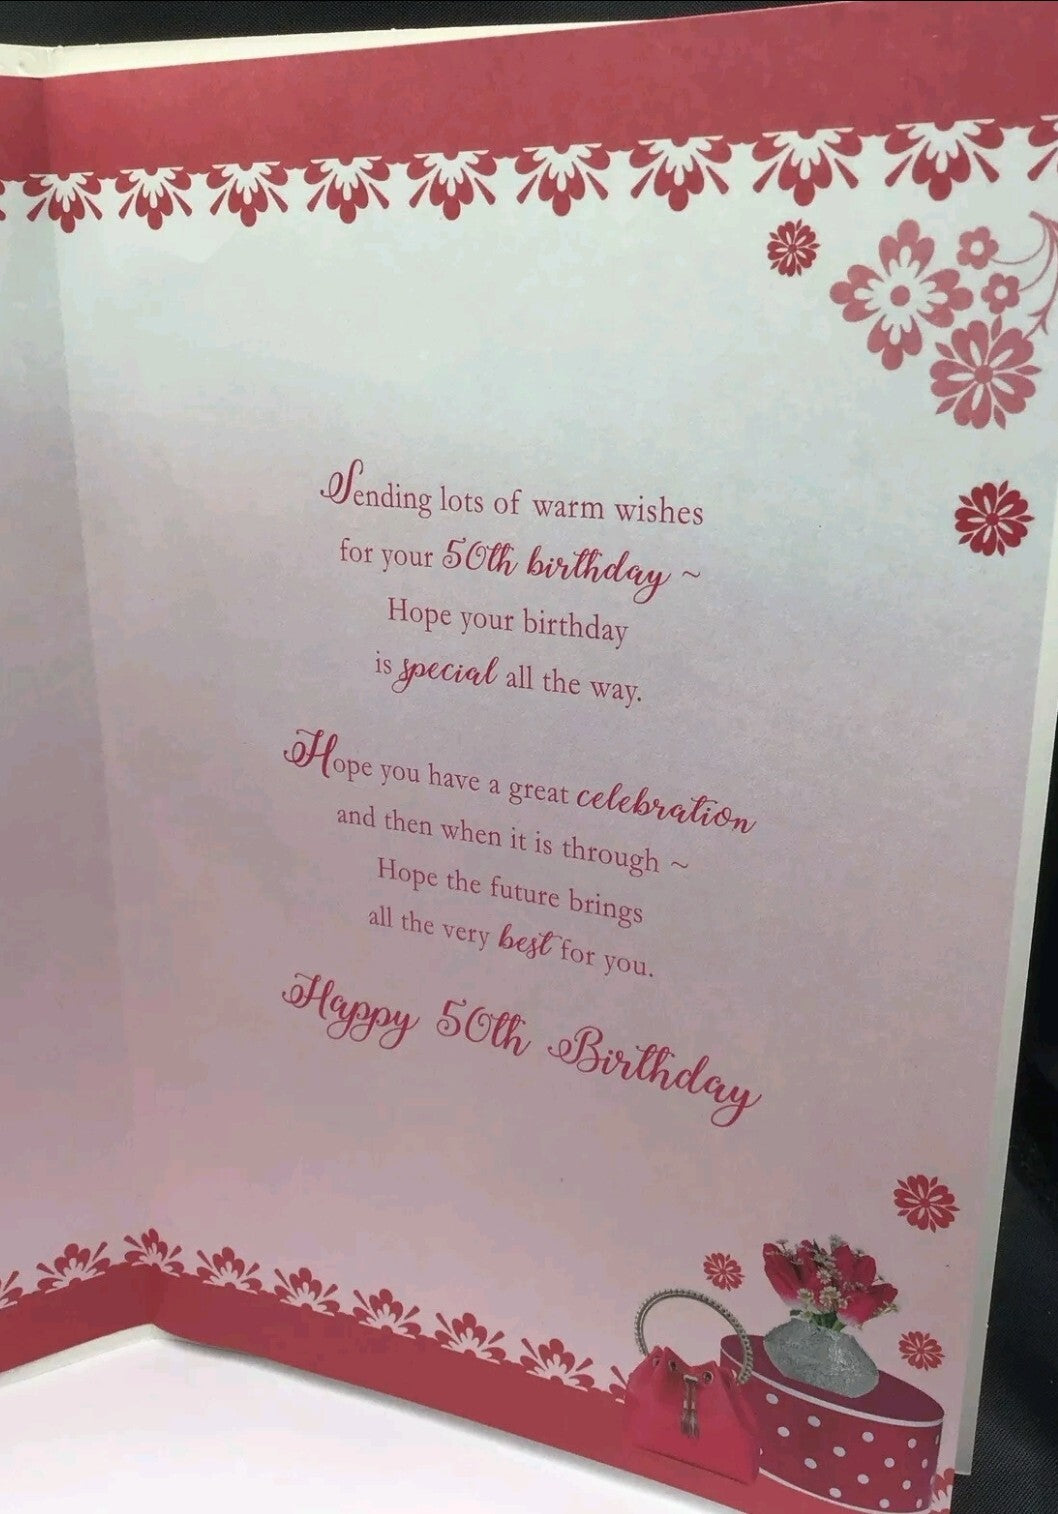 Sending lots of warm wishes
for your 50th birthday ~
Hope your birthday
is special all the way.
Hope you have a great celebration
and then when it is through ~
Hope the future brings
all the very best for you.
Happy 50th Birthday